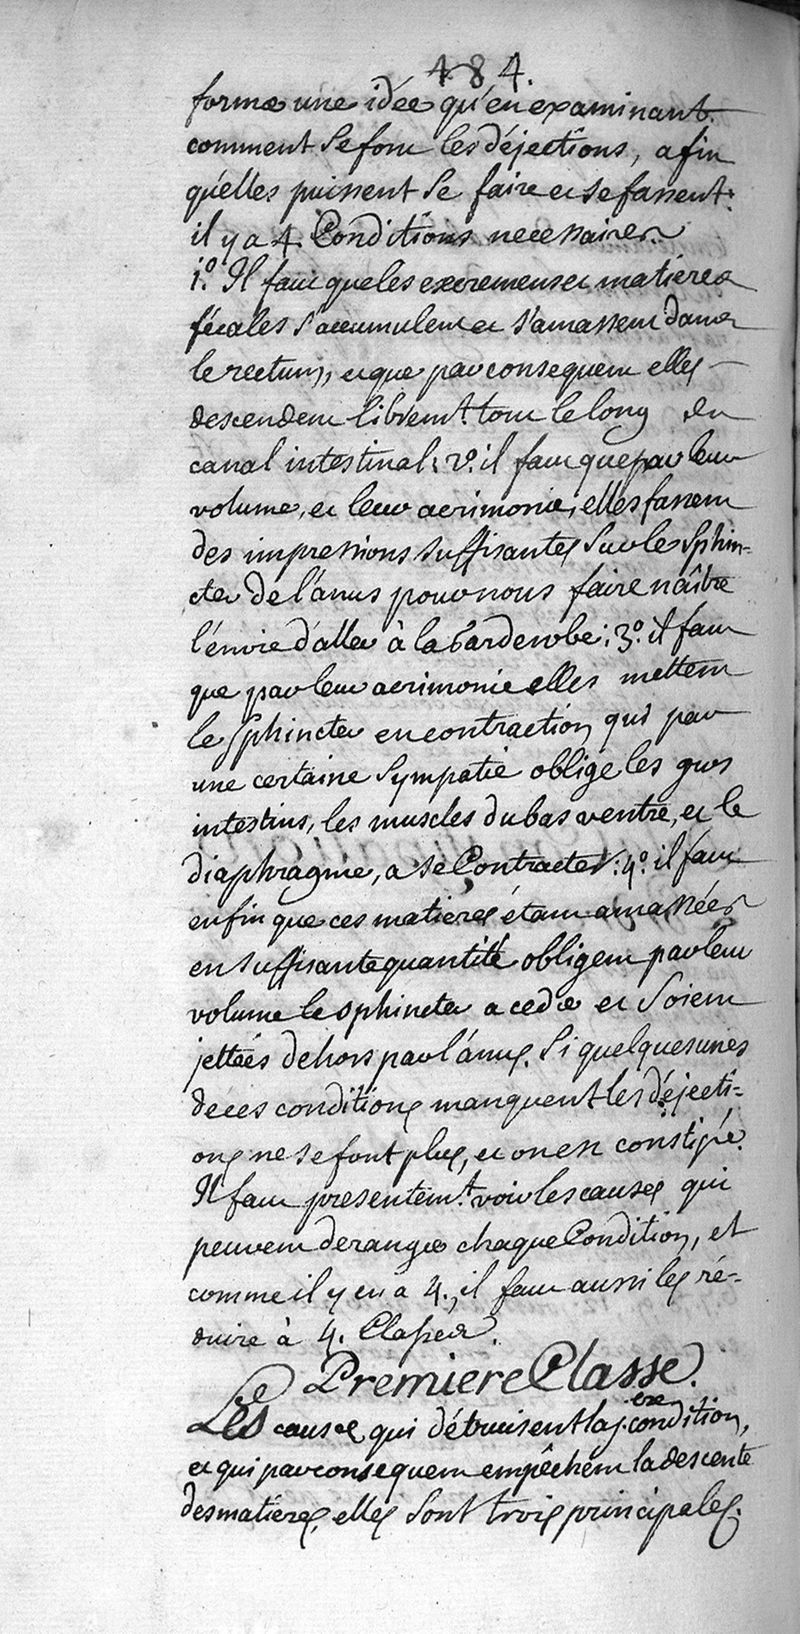 484.
former une idée qu'en examinant
comment se font les déjections, afin
qu'elles puissent se faire et se fassent:
il y a 4. Conditions necessaires.
1.° Il faut que les excremens et matieres
fécales s'accumulent et s'amassent dans
le rectum, et que par consequent elles
descendent librem.t tout le long du
canal intestinal; 2.° il faut que par leur
volume, et leur acrimonie, elles fassent
des impressions suffisantes sur le Sphin=
cter de l'anus pour nous faire naître
l'envie d'aller à la Garderobe; 3.° il faut
que par leur acrimonie elles mettent
le Sphincter en contraction, qui par
une certaine Sympatie oblige les gros
intestins, les muscles du bas ventre, et le
diaphragme, a se Contracter: 4.° il faut
enfin que ces matieres étant amassées
en suffisante quantité obligent par leur
volume le sphincter a ceder et soient
jettées dehors par l'ânus. Si quelques unes
de ces conditions manquent les déjecti=
ons ne se font plus, et on est constipé.
Il faut presentem.t voir les causes qui
peuvent deranger chaque Condition, et
comme il y en a 4., il faut aussi les ré=
duire à 4. Classes.
Premiere Classe.
Les causes qui détruisent la j.ere condition,
et qui par consequent empêchent la descente
des matières, elles sont trois principales.